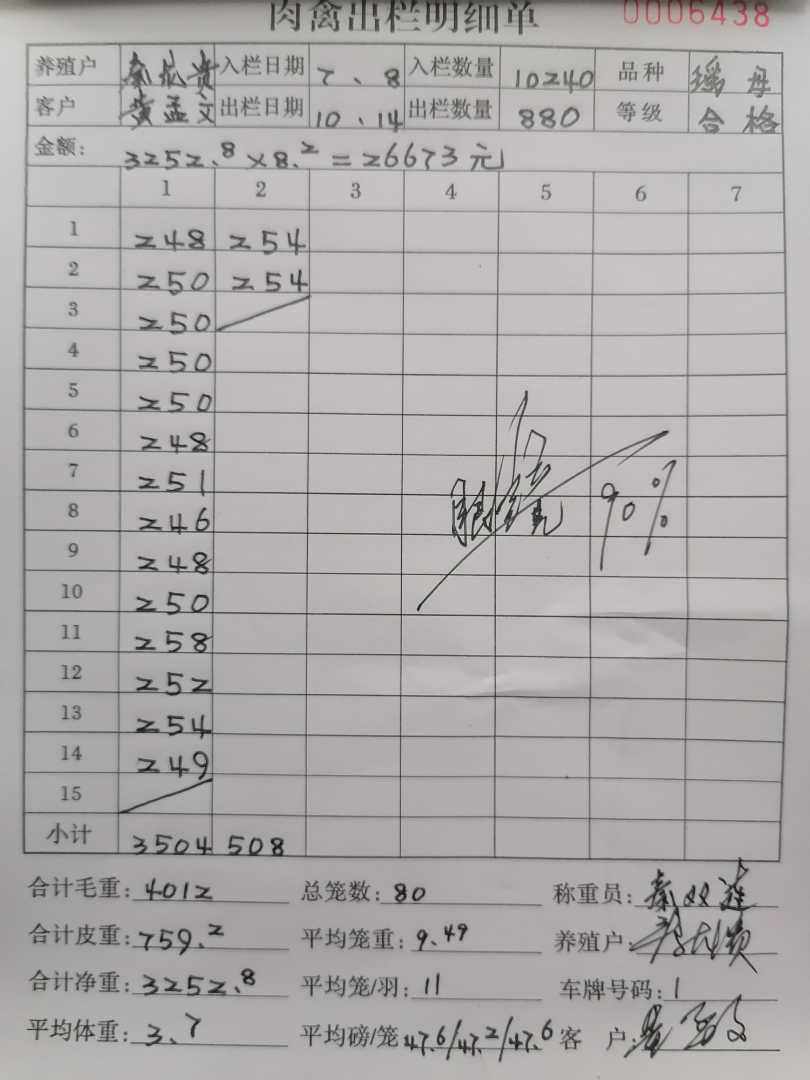 肉禽出栏明细单 0006438
养殖户 入栏日期 7、8 入栏数量 10240 品种 瑶母
客户 黄孟文 出栏日期 10、14 出栏数量 880 等级 合格
金额: 3252.8×8.2=26673元
1 2 3 4 5 6 7
1 248 254
2 250 254
3 250
4 250
5 250
6 248
7 251
8 246
9 248
10 250
11 258
12 252
13 254
14 249
15
90%
小计 3504 508
合计毛重: 4012 总笼数: 80 称重员: 秦双莲
合计皮重: 759.2 平均笼重: 9.49 养殖户:
合计净重: 3252.8 平均笼/羽: 11 车牌号码: 1
平均体重: 3.7 平均磅/笼 47.6/47.2/47.6 客 户: